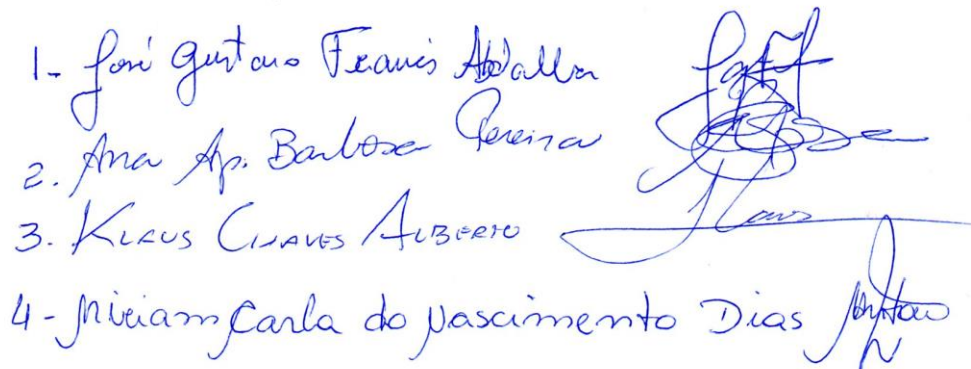 1- José Gustavo Francis Abdalla
2. Ana Ap. Barbosa Pereira
3. KLAUS CHAVES ALBERTO
4- Miriam Carla do Nascimento Dias